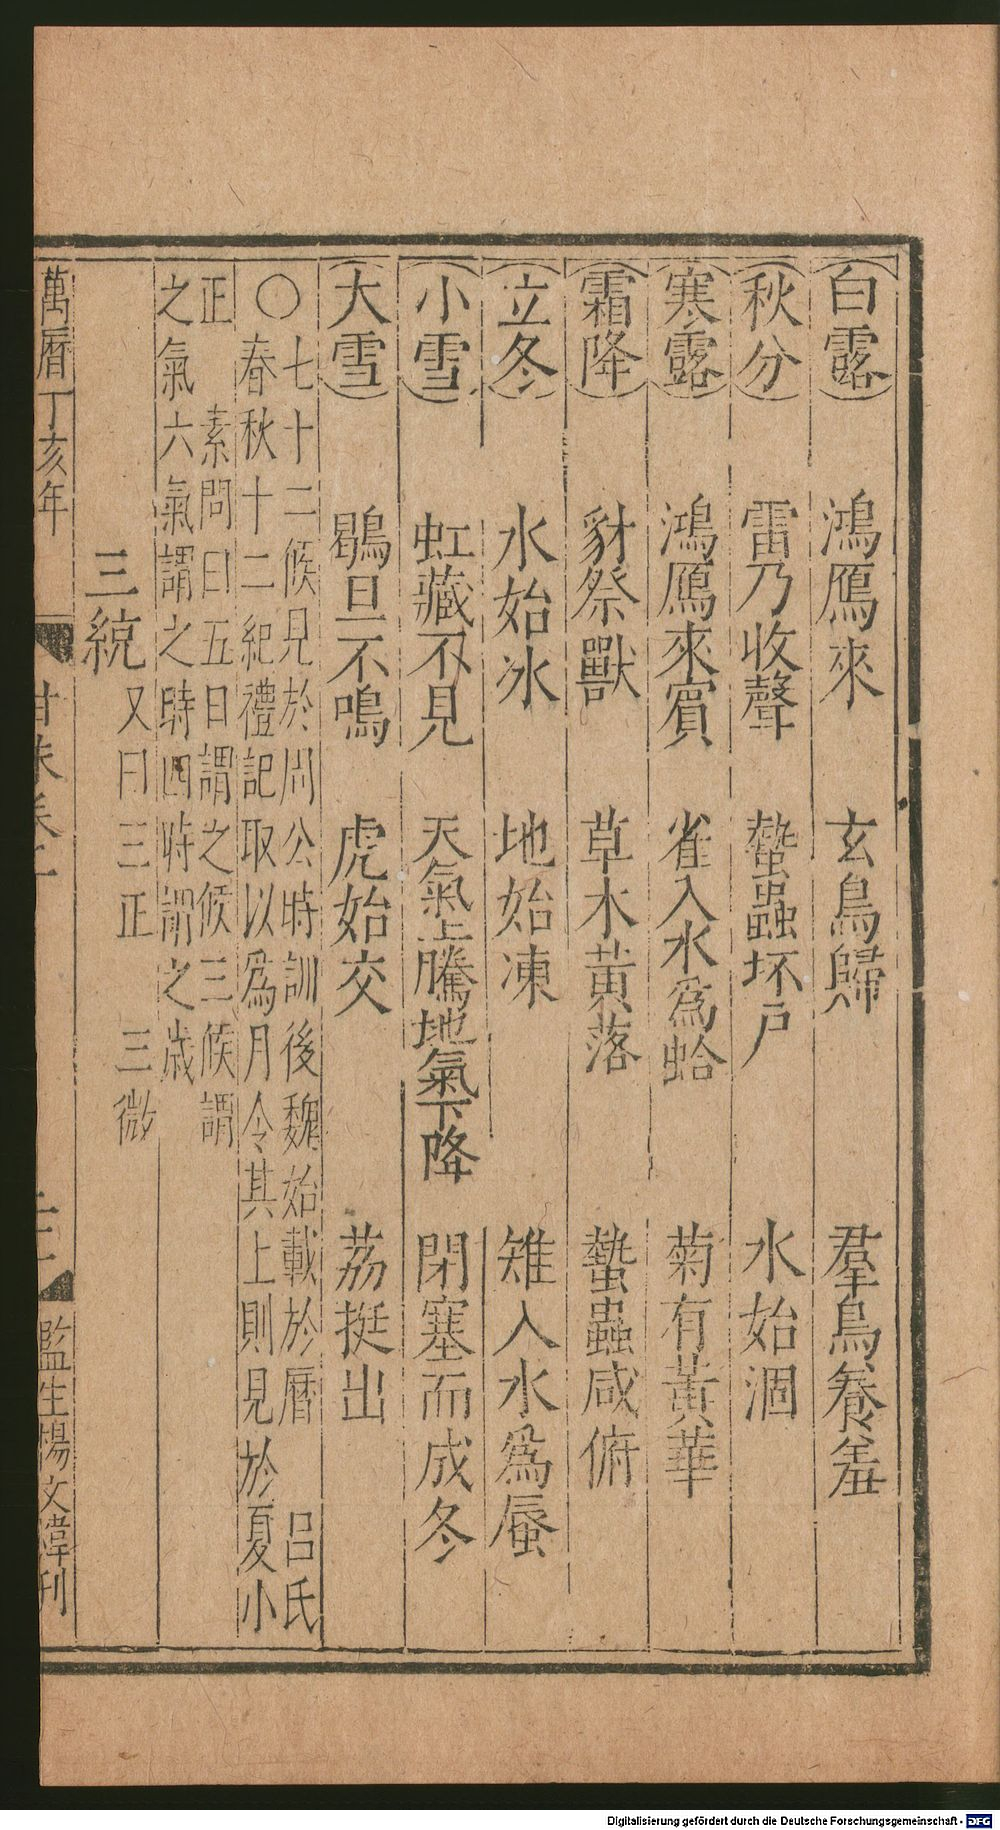 白露　鴻鴈來　玄鳥歸　羣鳥養羞
秋分　雷乃收聲　蟄蟲坏戶　水始涸
寒露　鴻鴈來賓　雀入水爲蛤　菊有黃華
霜降　豺祭獸　草木黃落　蟄蟲咸俯
立冬　水始冰　地始凍　雉入水爲蜃
小雪　虹藏不見　天氣上騰地氣下降　閉塞而成冬
大雪　鶡旦不鳴　虎始交　荔挺出
〇七十二候見於周公時訓後魏始載於曆　呂氏
春秋十二紀禮記取以爲月令其上則見於夏小
正　素問曰五日謂之候三候謂
之氣六氣謂之時四時謂之歲
三統　又曰三正　三微
萬曆丁亥年
監生楊文偉刊
Digitalisierung gefördert durch die Deutsche Forschungsgemeinschaft - DFG